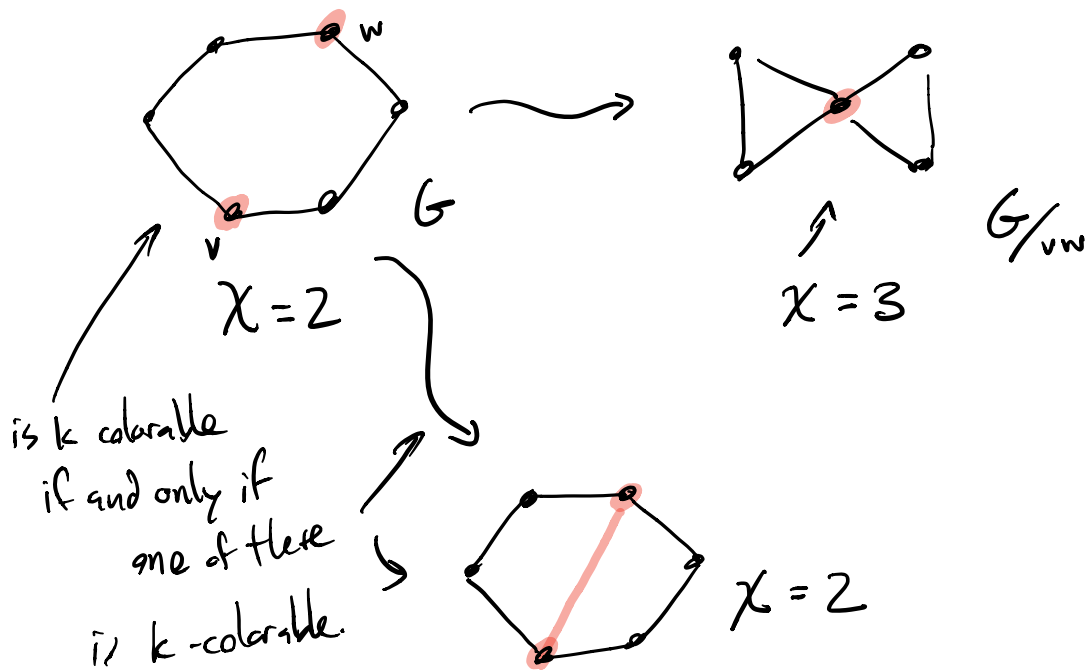 w
G
v
χ = 2
G/vw
χ = 3
is k colorable
if and only if
one of these
is k-colorable.
χ = 2